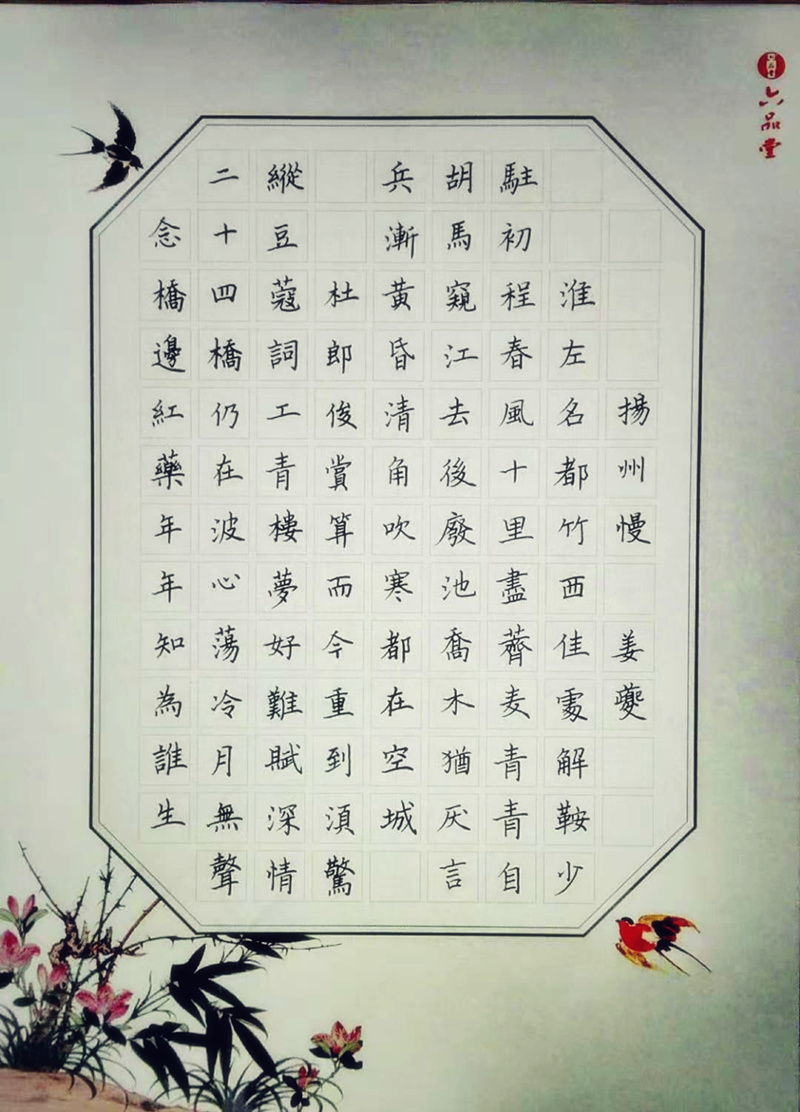 六品堂
揚州慢 姜夔
淮左名都竹西佳處解鞍少
駐初程春風十里盡薺麦青青自
胡馬窺江去後廢池喬木猶厌言
兵漸黃昏清角吹寒都在空城
杜郎俊賞算而今重到須驚
縱豆蔻詞工青樓夢好難賦深情
二十四橋仍在波心蕩冷月無聲
念橋邊紅藥年年知為誰生